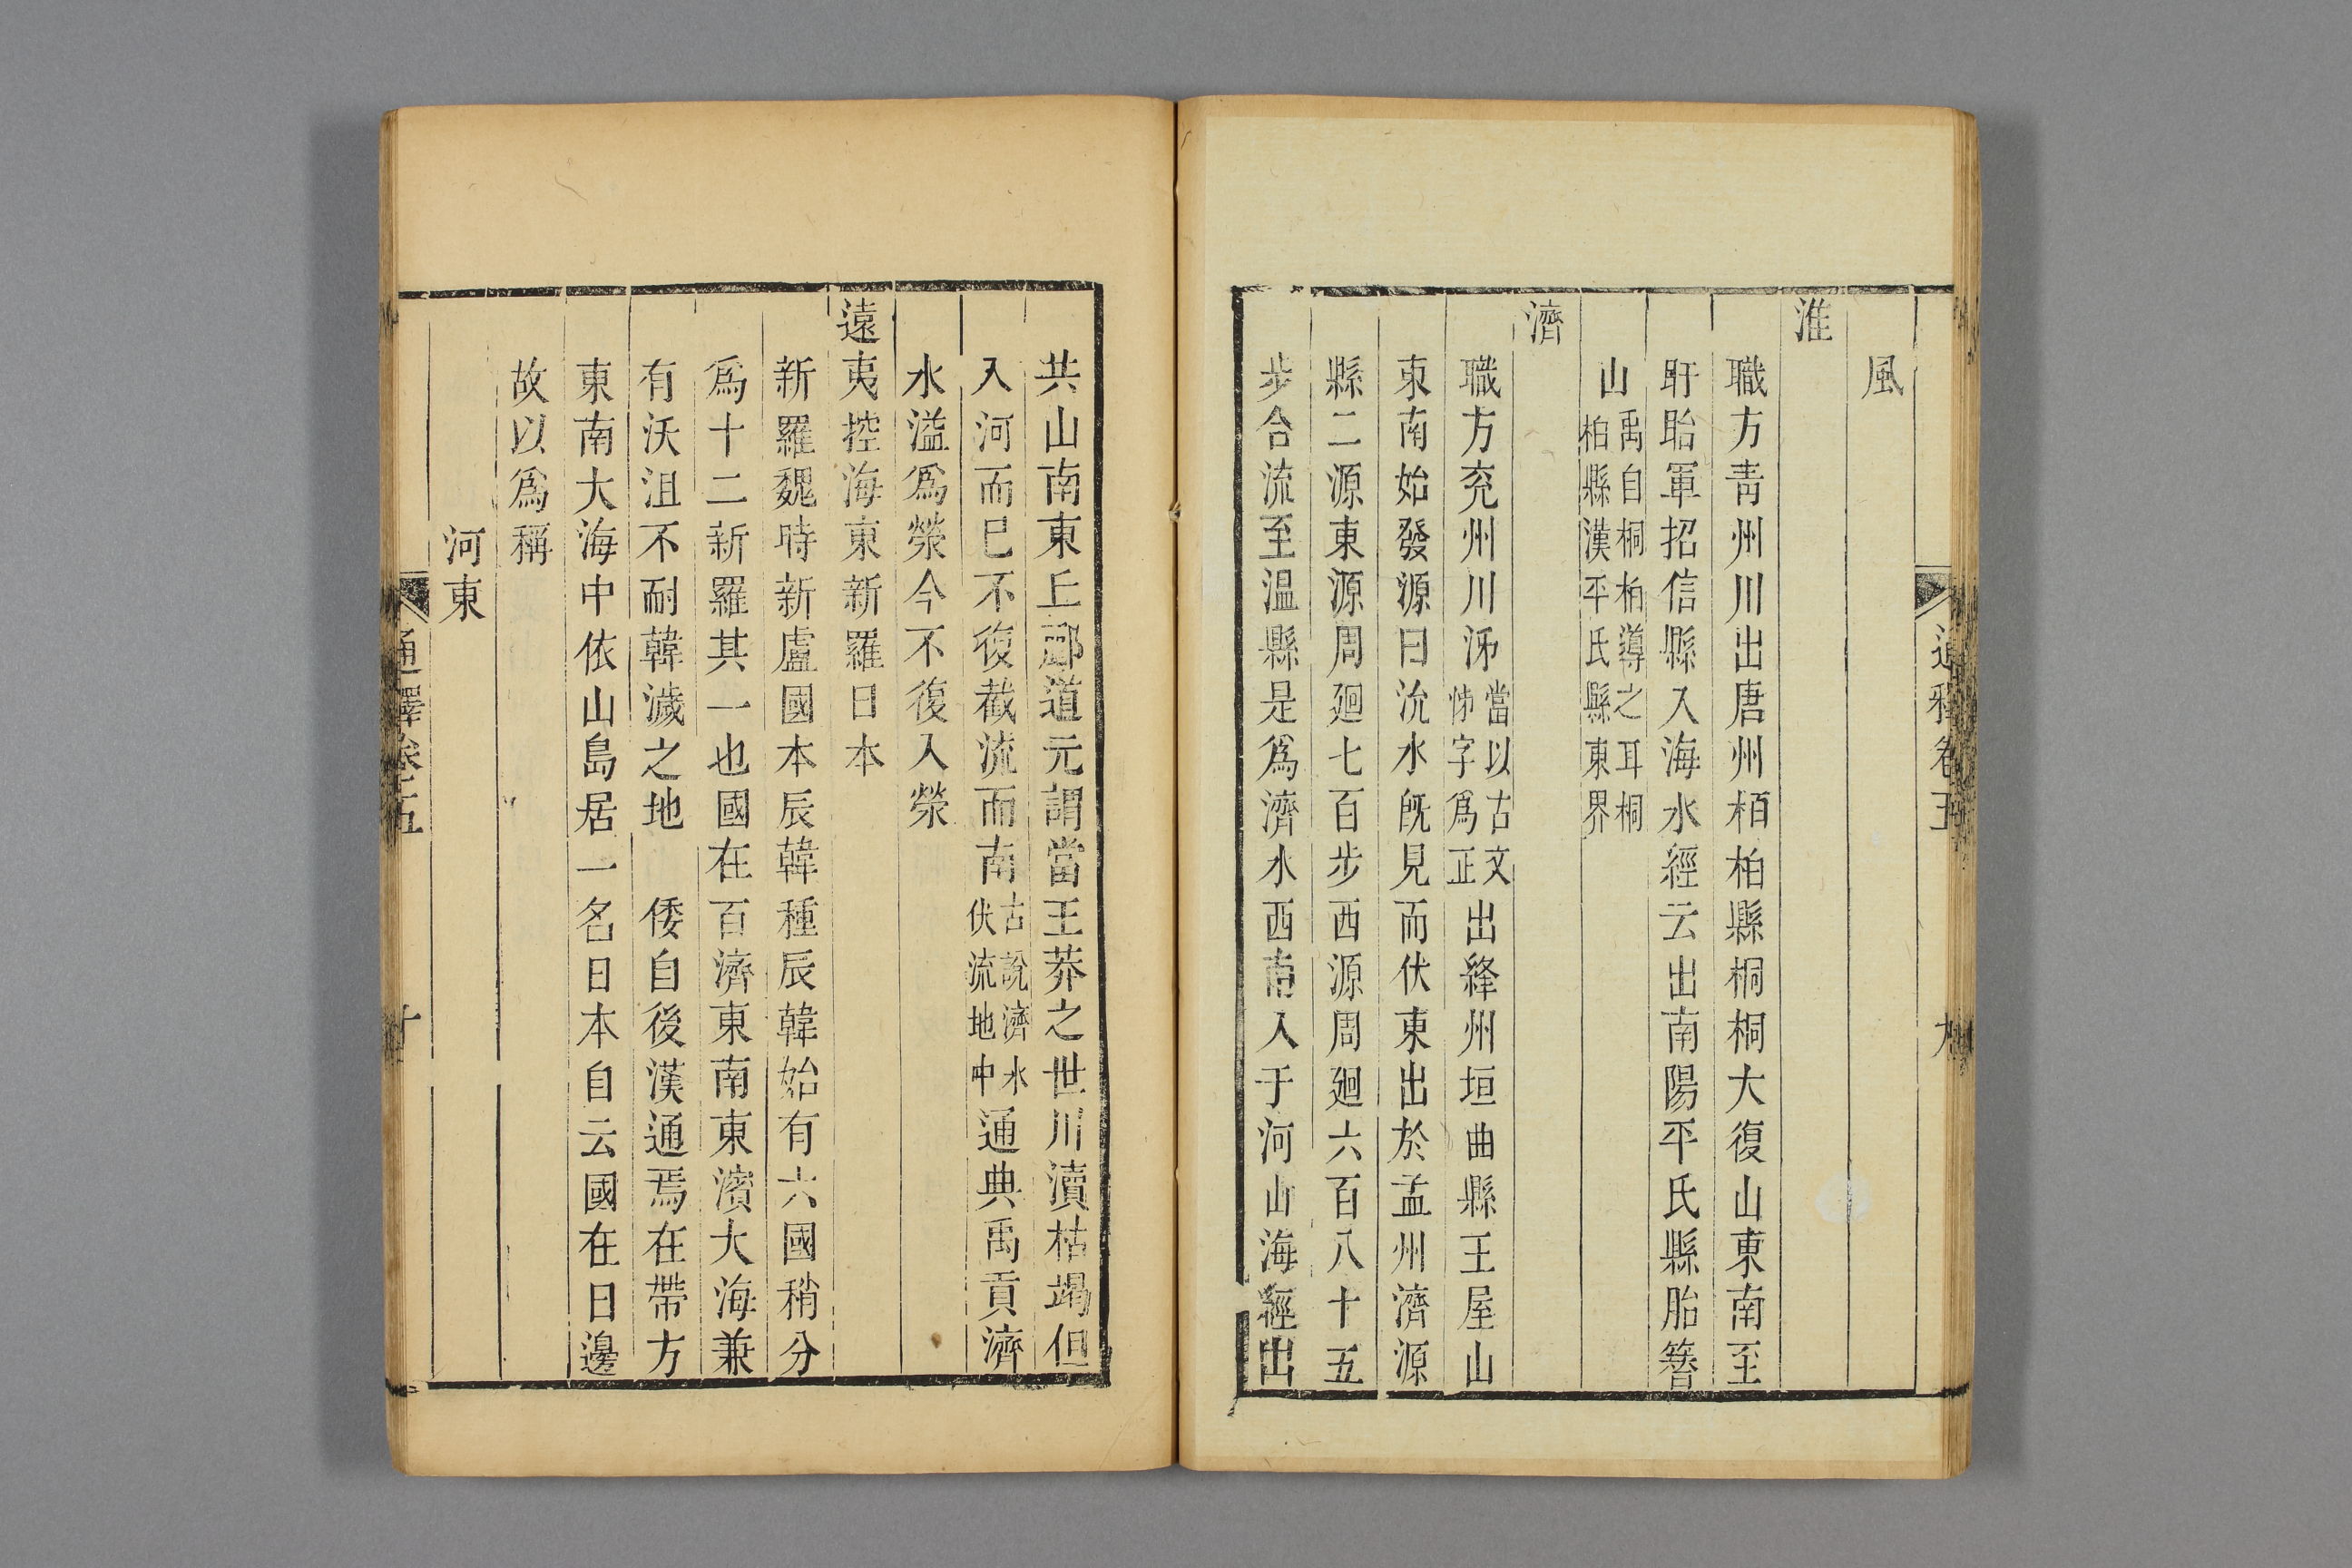 通釋卷五
九
風
淮
職方青州川出唐州栢柏縣桐桐大復山東南至
盱眙軍招信縣入海水經云出南陽平氏縣胎簪
山禹自桐柏導之耳桐
柏縣漢平氏縣東界
濟
職方兖州川泲當以古文
㳈字爲正出絳州垣曲縣王屋山
東南始發源曰沇水旣見而伏東出於孟州濟源
縣二源東源周廻七百步西源周廻六百八十五
步合流至温縣是爲濟水西南入于河山海經出
共山南東丘酈道元謂當王莽之世川瀆枯竭但
入河而巳不復截流而南古說濟水
伏流地中通典禹貢濟
水溢爲滎今不復入滎
遠夷控海東新羅日本
新羅魏時新盧國本辰韓種辰韓始有六國稍分
爲十二新羅其一也國在百濟東南東濱大海兼
有沃沮不耐韓濊之地 倭自後漢通焉在帶方
東南大海中依山島居一名日本自云國在日邊
故以爲稱
河東
通釋卷五
十